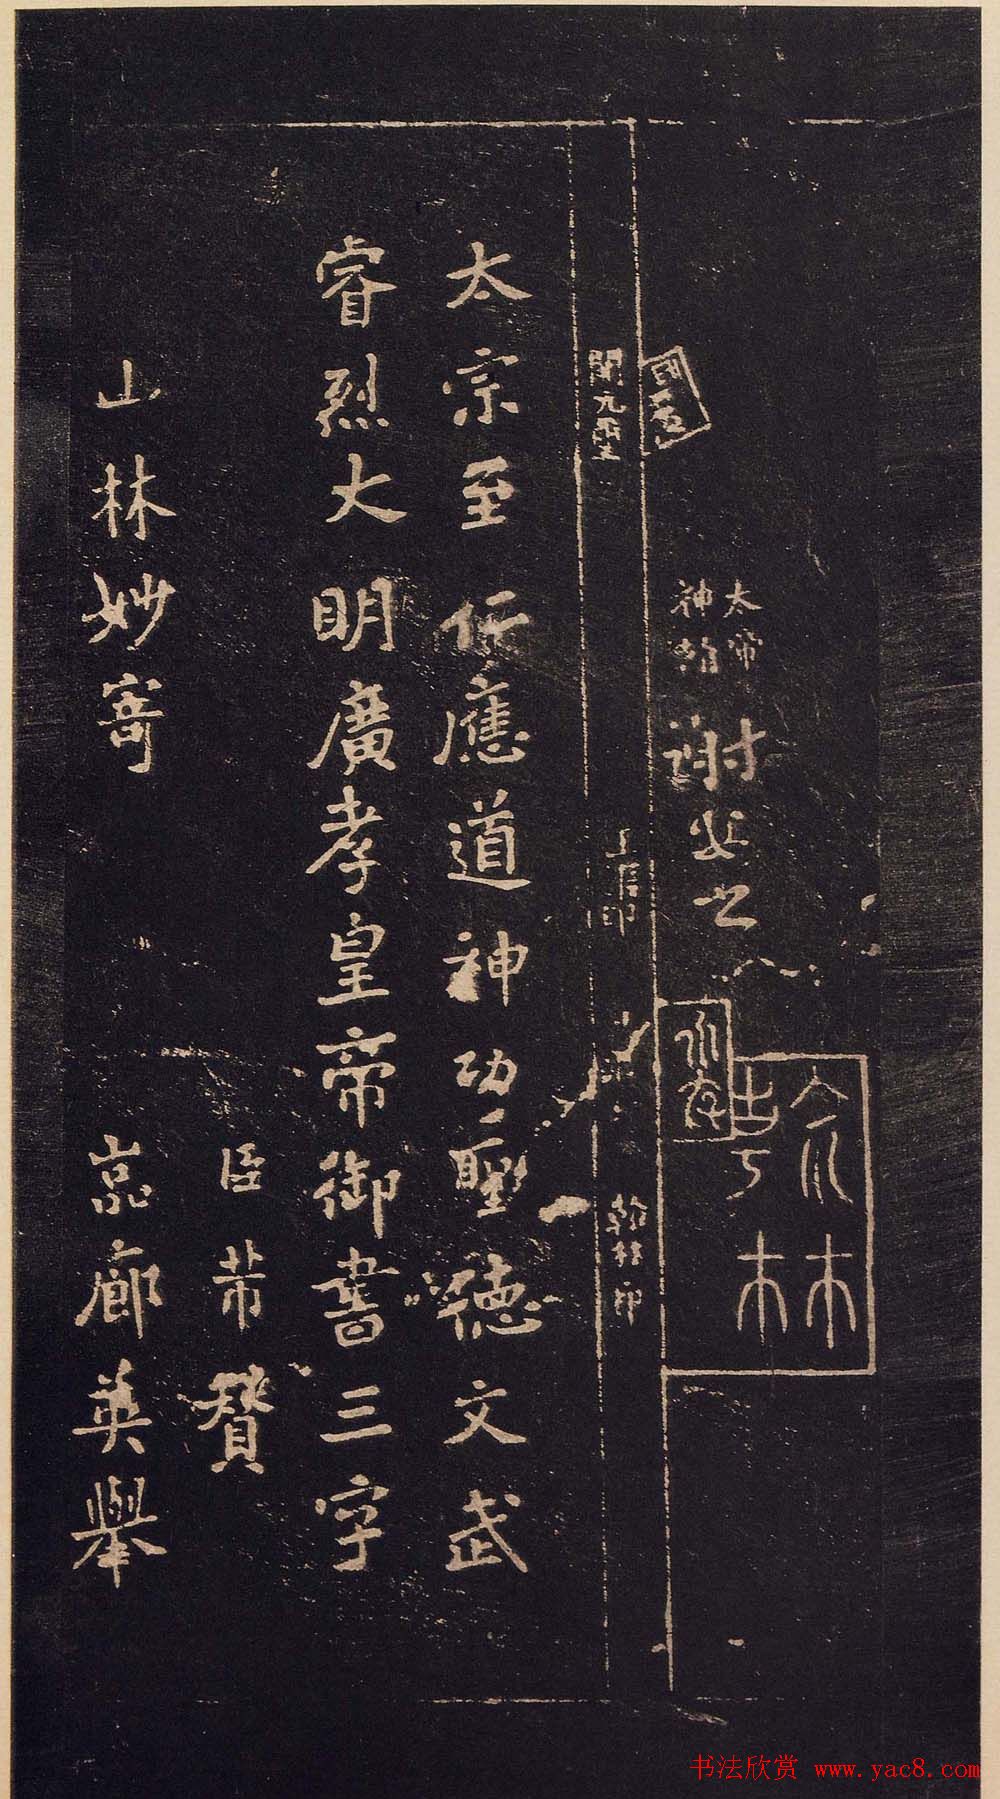 太帝
神翰
謝安世
翰林印
太宗至仁應道神功聖德文武
睿烈大明廣孝皇帝御書三字
臣芾贊
山林妙寄
巖廊英舉
书法欣赏 www.yac8.com